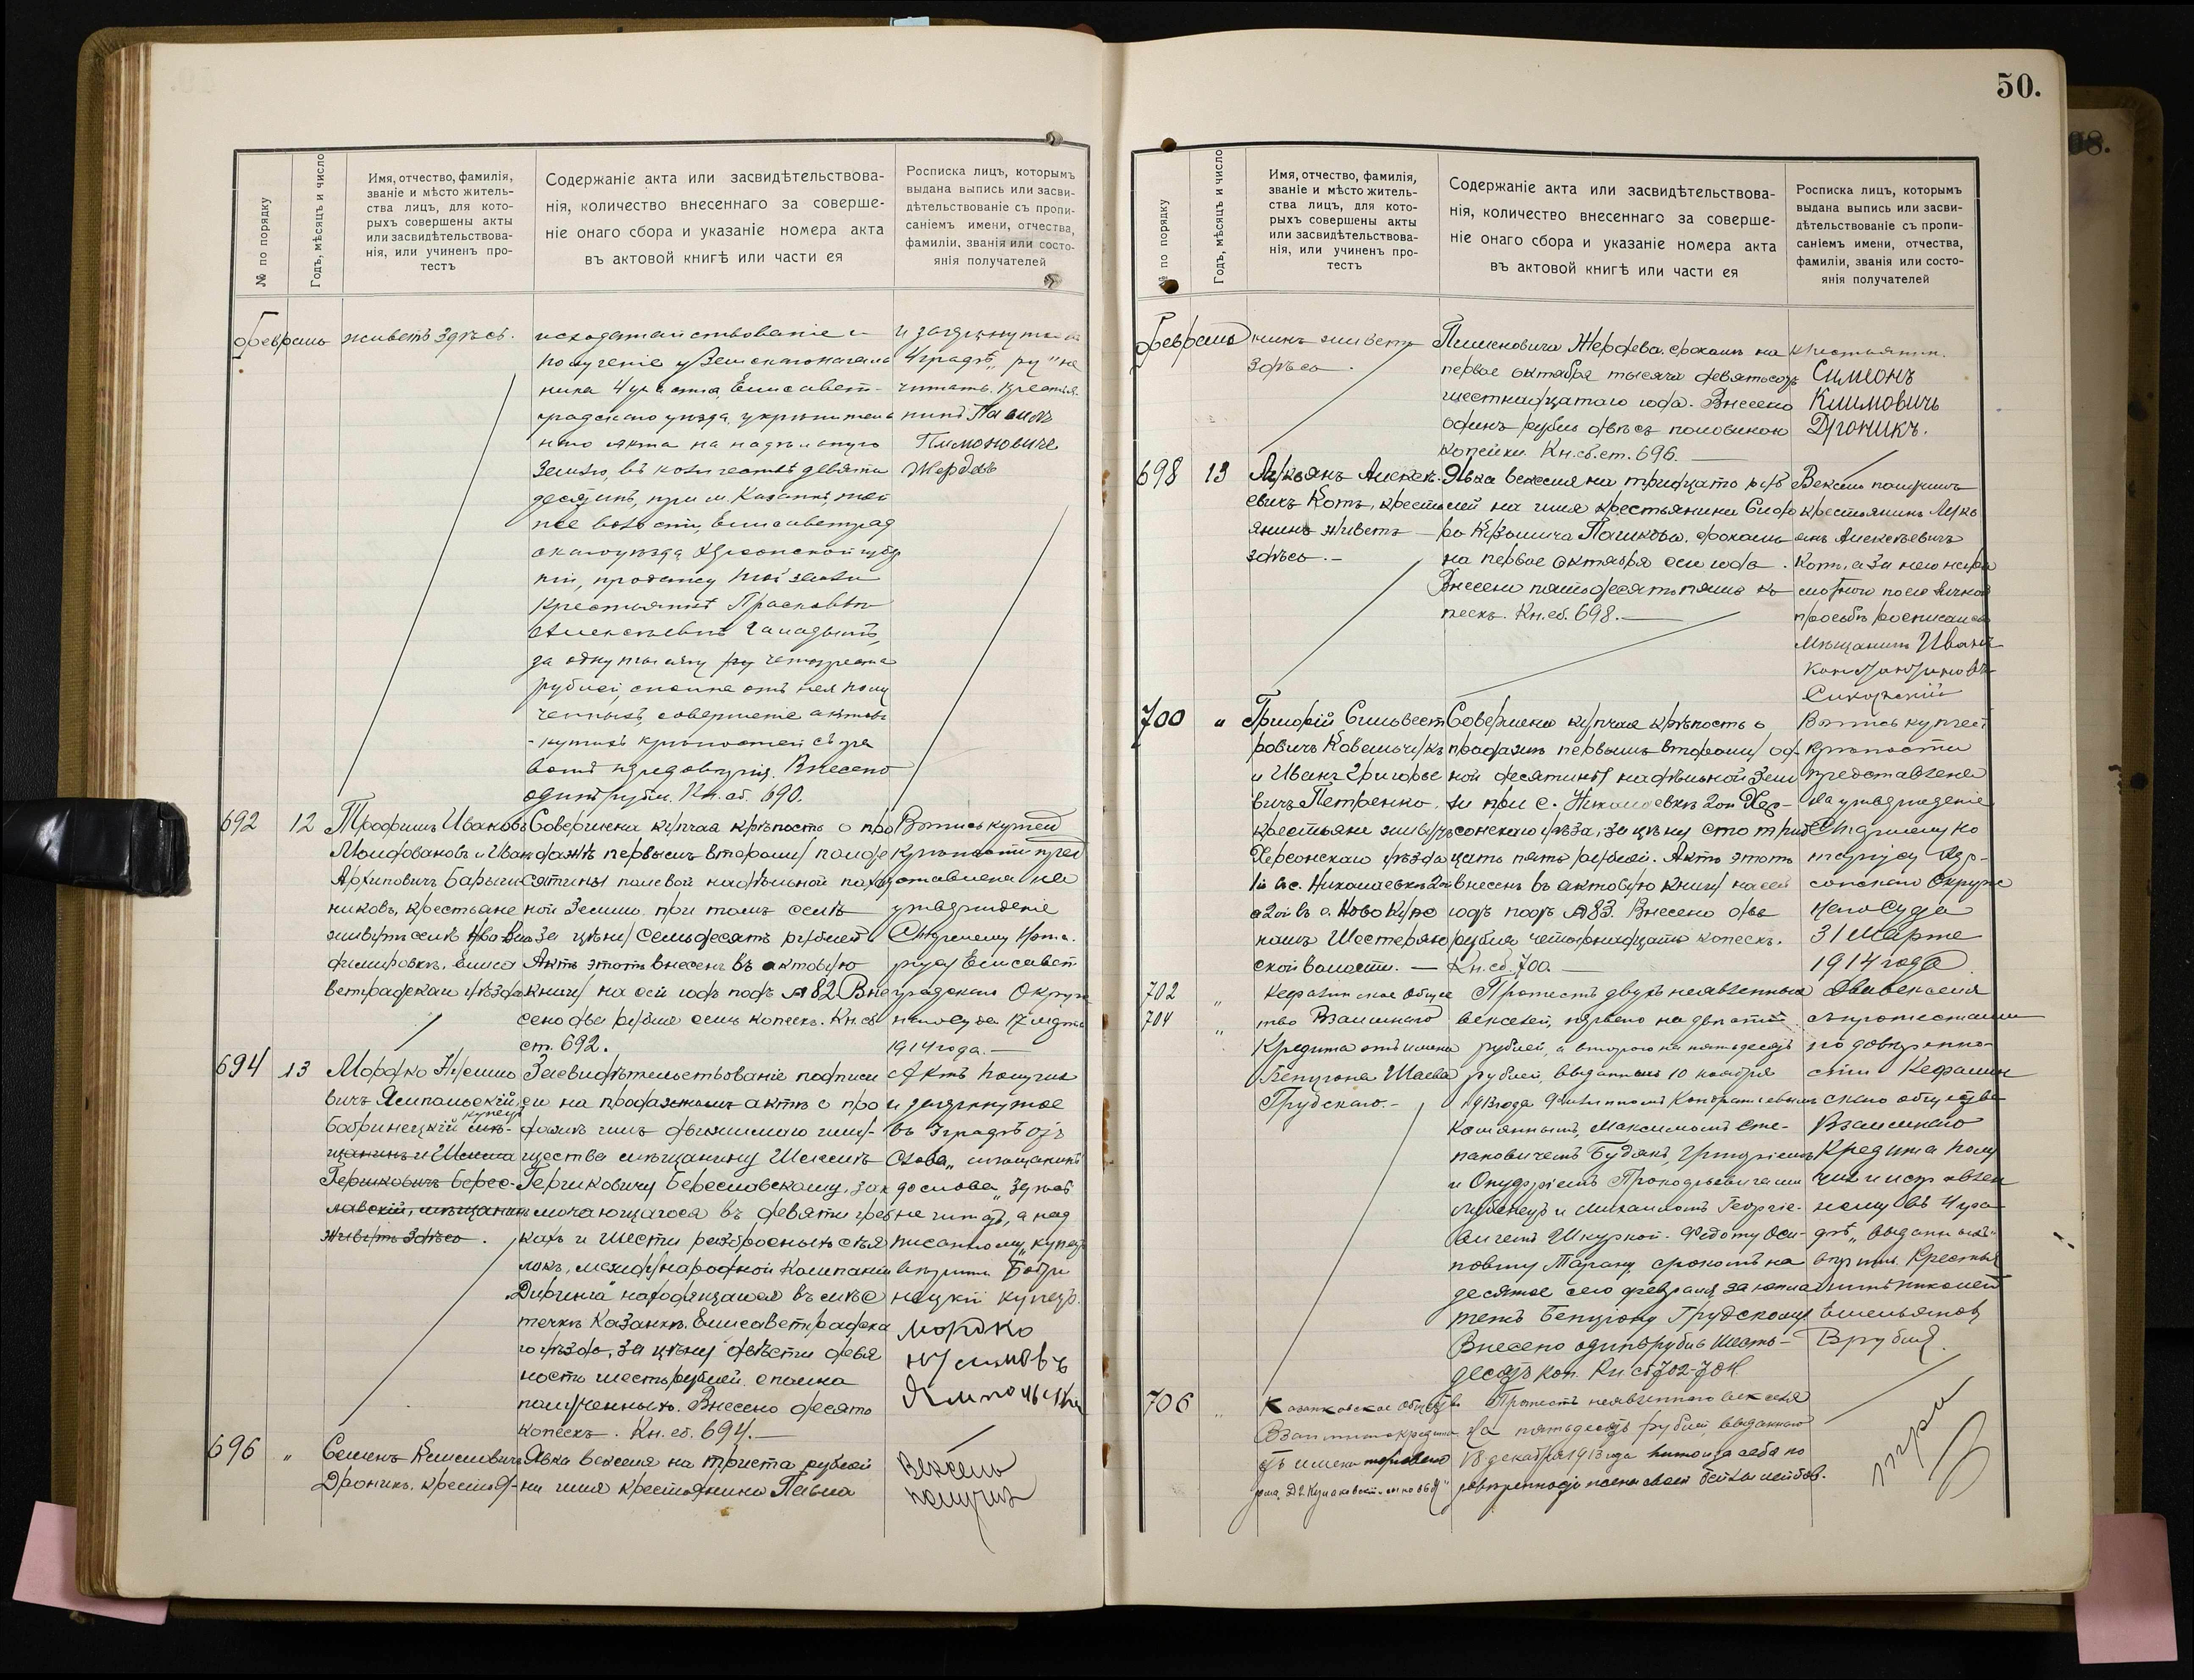 50.
№ по порядку
Годъ, мѣсяцъ и число
Имя, отчество, фамилія,
званіе и мѣсто житель-
ства лицъ, для кото-
рыхъ совершены акты
или засвидѣтельствова-
нія, или учиненъ про-
тестъ
Содержаніе акта или засвидѣтельствова-
нія, количество внесеннаго за соверше-
ніе онаго сбора и указаніе номера акта
въ актовой книгѣ или части ея
Росписка лицъ, которымъ
выдана выпись или засви-
дѣтельствованіе съ пропи-
саніемъ имени, отчества,
фамиліи, званія или состо-
янія получателей
февраль
живетъ здѣсь.
исходатайствованіе и
полученіе у Земскаго началь
ника 4 участка Елисавет-
градскаго уѣзда, укрѣпитель
наго акта на надѣльную
землю, въ количествѣ девяти
десятинъ, при м. Казанкѣ, той
же волости, Елисаветград
скаго уѣзда Херсонской губер
ніи, продажу той земли
крестьянкѣ Прасковьи
Алексѣевнѣ
за одну тысячу четыреста
рублей, сполна отъ нея полу
ченныхъ, совершеніе актовъ
купчихъ крѣпостей съ пра
вомъ передовѣрія. Внесено
одинъ рубль. Кн. сб. 690.
и зачеркнутое
4 градѣ „ру" не
читать. Крестья
нинъ Павелъ
Пимоновичъ
Жердевъ
692
12
Трофимъ Ивановъ
Молдовановъ и Иван
Архиповичъ Барыш
никовъ, крестьяне
живутъ селѣ Ново Вла
димировкѣ, Елиса
ветградскаго уѣзда
Совершена купчая крѣпость о про
дажѣ первымъ второму полуде
сятины полевой надѣльной пахот
ной земли при томъ селѣ
за цѣну семьдесятъ рублей
Актъ этотъ внесенъ въ актовую
книгу на сей годъ подъ № 82. Вне
сено два рубля семь копеекъ. Кн. сб
ст. 692.
Выпись купчей
крѣпости пред
ставлена на
утвержденіе
Старшему Нота-
ріусу Елисавет
градскаго Окруж
наго Суда 17 марта
1914 года.—
694
13
Мордко Нусимо
вичъ Ямпольскій,
бобринецкій мѣ-
купецъ
щанинъ и Шлема
Гершковичъ Берес-
лавскій, мѣщанинъ
живутъ здѣсь.
Засвидѣтельствованіе подписи
ея на продажномъ актѣ о про
дажѣ имъ движимаго иму-
щества мѣщанину Шлемѣ
Гершковичу Береславскому, зак
лючающагося въ девяти греб
кахъ и шести разбросныхъ сѣял
локъ, международной Компаніи
Диринга" находящагося въ мѣс
течкѣ Казанкѣ, Елисаветградска
го уѣзда, за цѣну двѣсти девя
носто шесть рублей сполна
полученныхъ. Внесено десять
копеекъ. Кн. сб. 694.—
Актъ получилъ
и зачеркнутое
въ 3 градѣ отъ
слова „ мѣщанинъ
до слова „ здѣсь
не читать, а над
писанному „ купецъ
вѣрить. Бобри
нецкій купецъ
Мордко
Нусимовъ
Ямпольскій
696
"
Семенъ Климовичъ
Дроникъ, крестья-
Явка векселя на триста рублей
на имя крестьянина Павла
Вексель
получилъ
№ по порядку
Годъ, мѣсяцъ и число
Имя, отчество, фамилія,
званіе и мѣсто житель-
ства лицъ, для кото-
рыхъ совершены акты
или засвидѣтельствова-
нія, или учиненъ про-
тестъ
Содержаніе акта или засвидѣтельствова-
нія, количество внесеннаго за соверше-
ніе онаго сбора и указаніе номера акта
въ актовой книгѣ или части ея
Росписка лицъ, которымъ
выдана выпись или засви-
дѣтельствованіе съ пропи-
саніемъ имени, отчества,
фамиліи, званія или состо-
янія получателей
февраль
нинъ живетъ
здѣсь.
Пименовича Жердева. срокомъ на
первое октября тысяча девятьсотъ
шестнадцатаго года. Внесено
одинъ рубль двѣсъ половиною
копейки. Кн. сб. ст. 696.
крестьянин.
Симеонъ
Климовичъ
Дроникъ.
698
13
Лукьянъ Алексѣ-
евичъ Котъ, кресть
янинъ живетъ
здѣсь.—
Явка векселя на тридцать руб
лей на имя крестьянина Сидо
ра Кузьмича Пашкова. срокомъ
на первое октября сего года.
Внесено пятьдесятъ пять ко
пеекъ. Кн. сб. 698.—
Вексель получилъ
крестьянинъ Лукь
янъ Алексѣевичъ
Котъ, а за него негра
мотнаго по его личной
просьбѣ росписался
Мѣщанинъ Иванъ
Константиновъ
Сикорскій
700
"
Григорій Сильвест
ровичъ Ковальчукъ
и Иванъ Григорье
вичъ Петренко,
крестьяне живутъ
Херсонскаго уѣзда
1й въ с. Николаевкѣ 2й
а 2й въ с. Ново Кур
номъ Шестерню
ской волости. —
Совершена купчая крѣпость о
продажѣ первымъ второму од-
ной десятины надѣльной зем
ли при с. Николаевкѣ 2ой Хер-
сонскаго уѣзда, за цѣну сто трид
цать пять рублей. Актъ этотъ
внесенъ въ актовую книгу на сей
годъ подъ № 83. Внесено два
рубля четырнадцать копеекъ.
Кн. сб. 700.
Выпись купчей
крѣпости
представлена
на утвержденіе
Старшему Но
таріусу Хер-
сонскаго Окруж
наго Суда
31 Марта
1914 года.
702
704
"
"
Кефалинское Общес
тво Взаимнаго
Кредита отъ имени
Бенціона Шаева
Грудскаго.—
Протестъ двухъ неявленныхъ
векселей, перваго на двѣсти
рублей, а второго на пятьдесятъ
рублей, выданныхъ 10 ноября
1913 года Филиппомъ Кондратьевымъ
Каминнымъ, Максимомъ Сте-
пановичемъ Будякъ, Григоріемъ
и Онуфріемъ Прокофьевичами
и Михаиломъ Георгіе-
вичемъ Шкуркой. Федоту Оси-
повичу Тарану срокомъ на
десятое сего февраля
Бенціону Грудскому
Внесено одинъ рубль шесть-
десятъ коп. Кн. сб. 702-704.
Два векселя
съ протестами
по довѣренно-
сти Кефалин
скаго общества
Взаимнаго
Кредита полу
чилъ и исправлен
ному въ 4 гра
дѣ „ выданныхъ"
вѣрить. Крестья
нинъ Николай
Емельяновъ
Врублій
706
"
Казанковское Общество
Взаимнаго кредита
отъ имени
Протестъ неявленнаго векселя
на пятьдесятъ рублей, выданнаго
18 декабря 1913 года